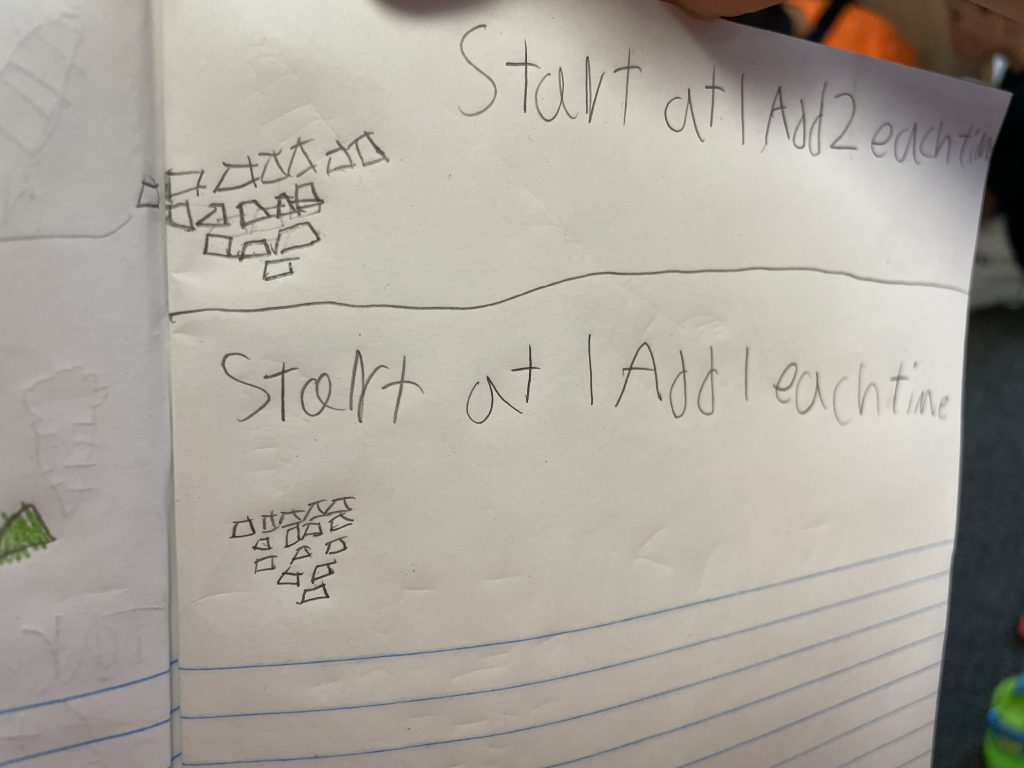 Start at 1 Add 2 each tim
Start at 1 Add 1 each time